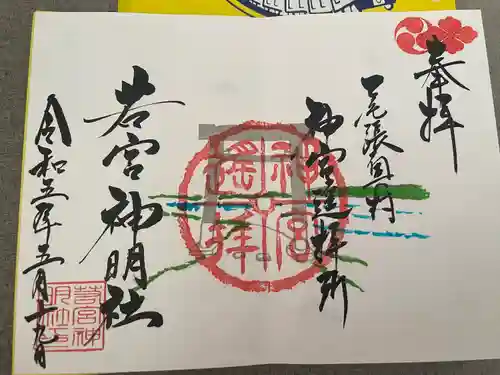 奉拝
尾張国一打
神宮遥拝所
神宮遥拝
若宮神明社
若宮神明社印
令和五年五月十九日